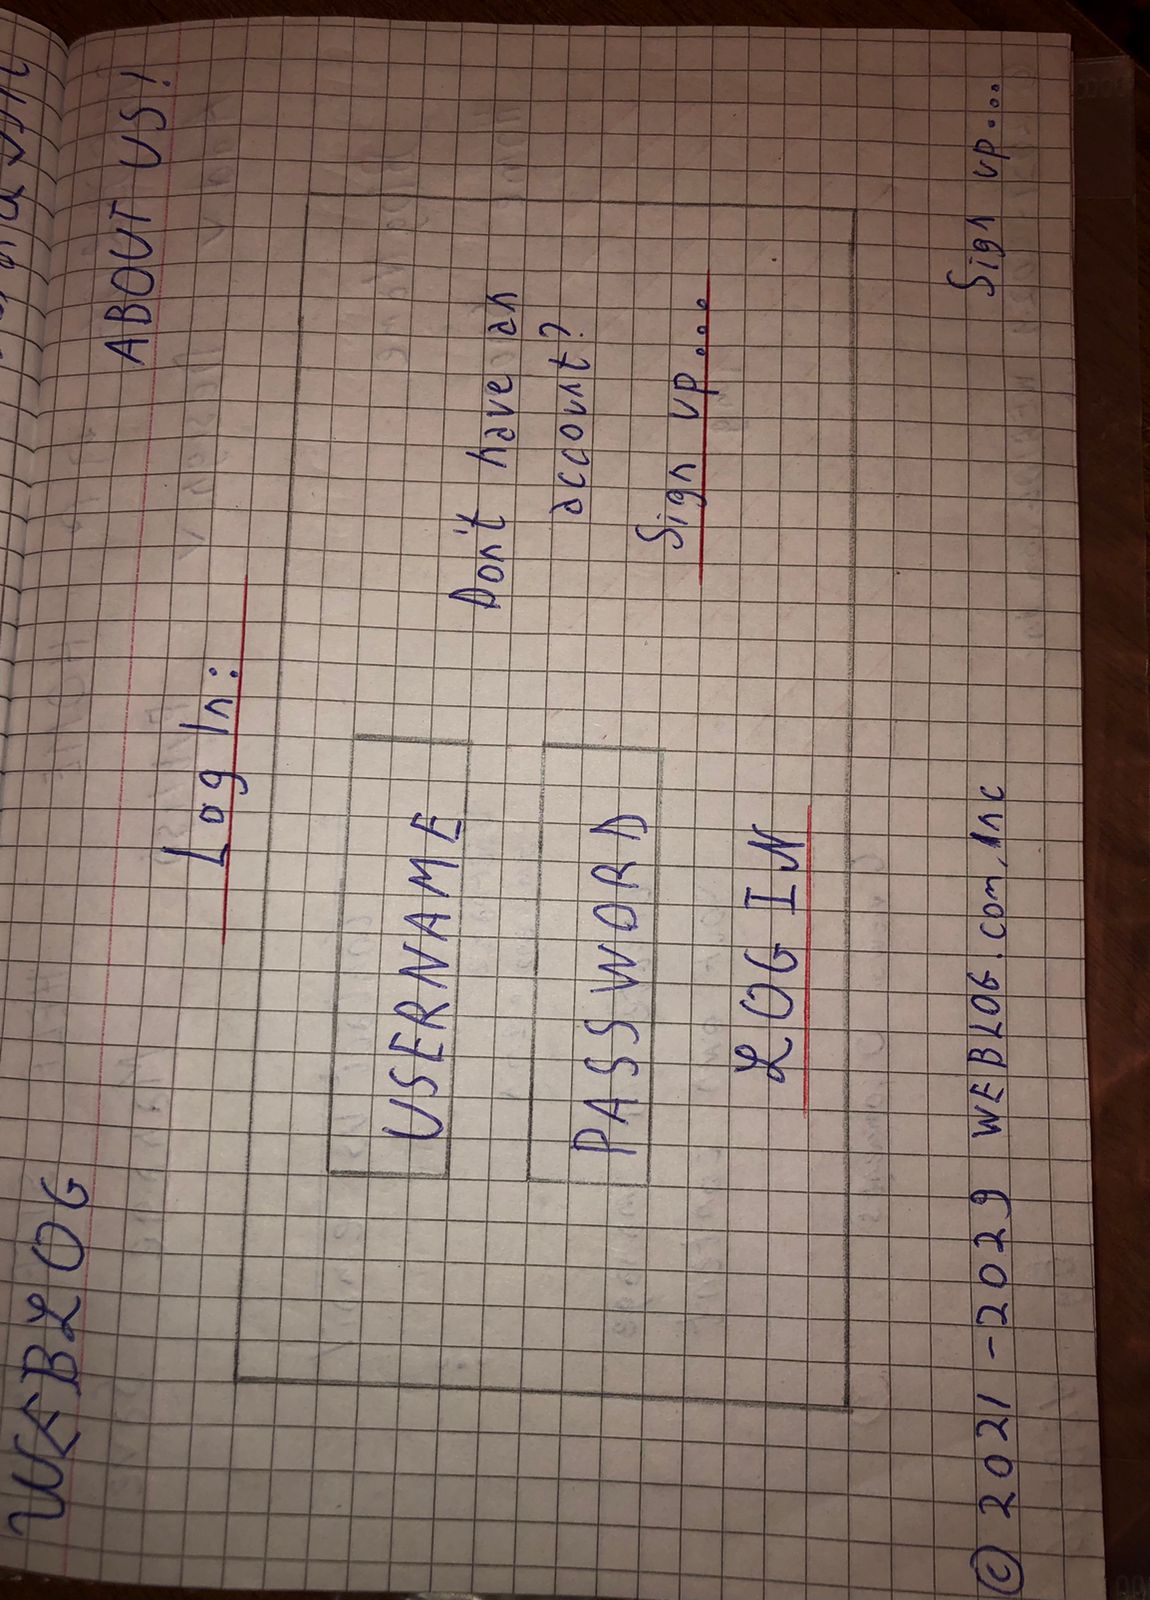 WEBLOG
ABOUT US!
Log In:
USERNAME
PASSWORD
LOG IN
Don't have an
account?
Sign up...
© 2021-2029 WEBLOG.com, Inc
Sign up...